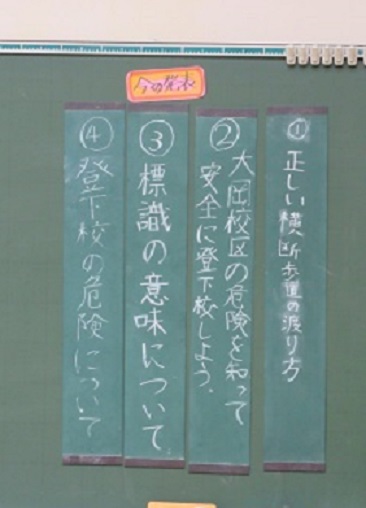 今日の発表
①正しい横断歩道の渡り方
②大岡校区の危険を知って
安全に登下校しよう。
③標識の意味について。
④登下校の危険について